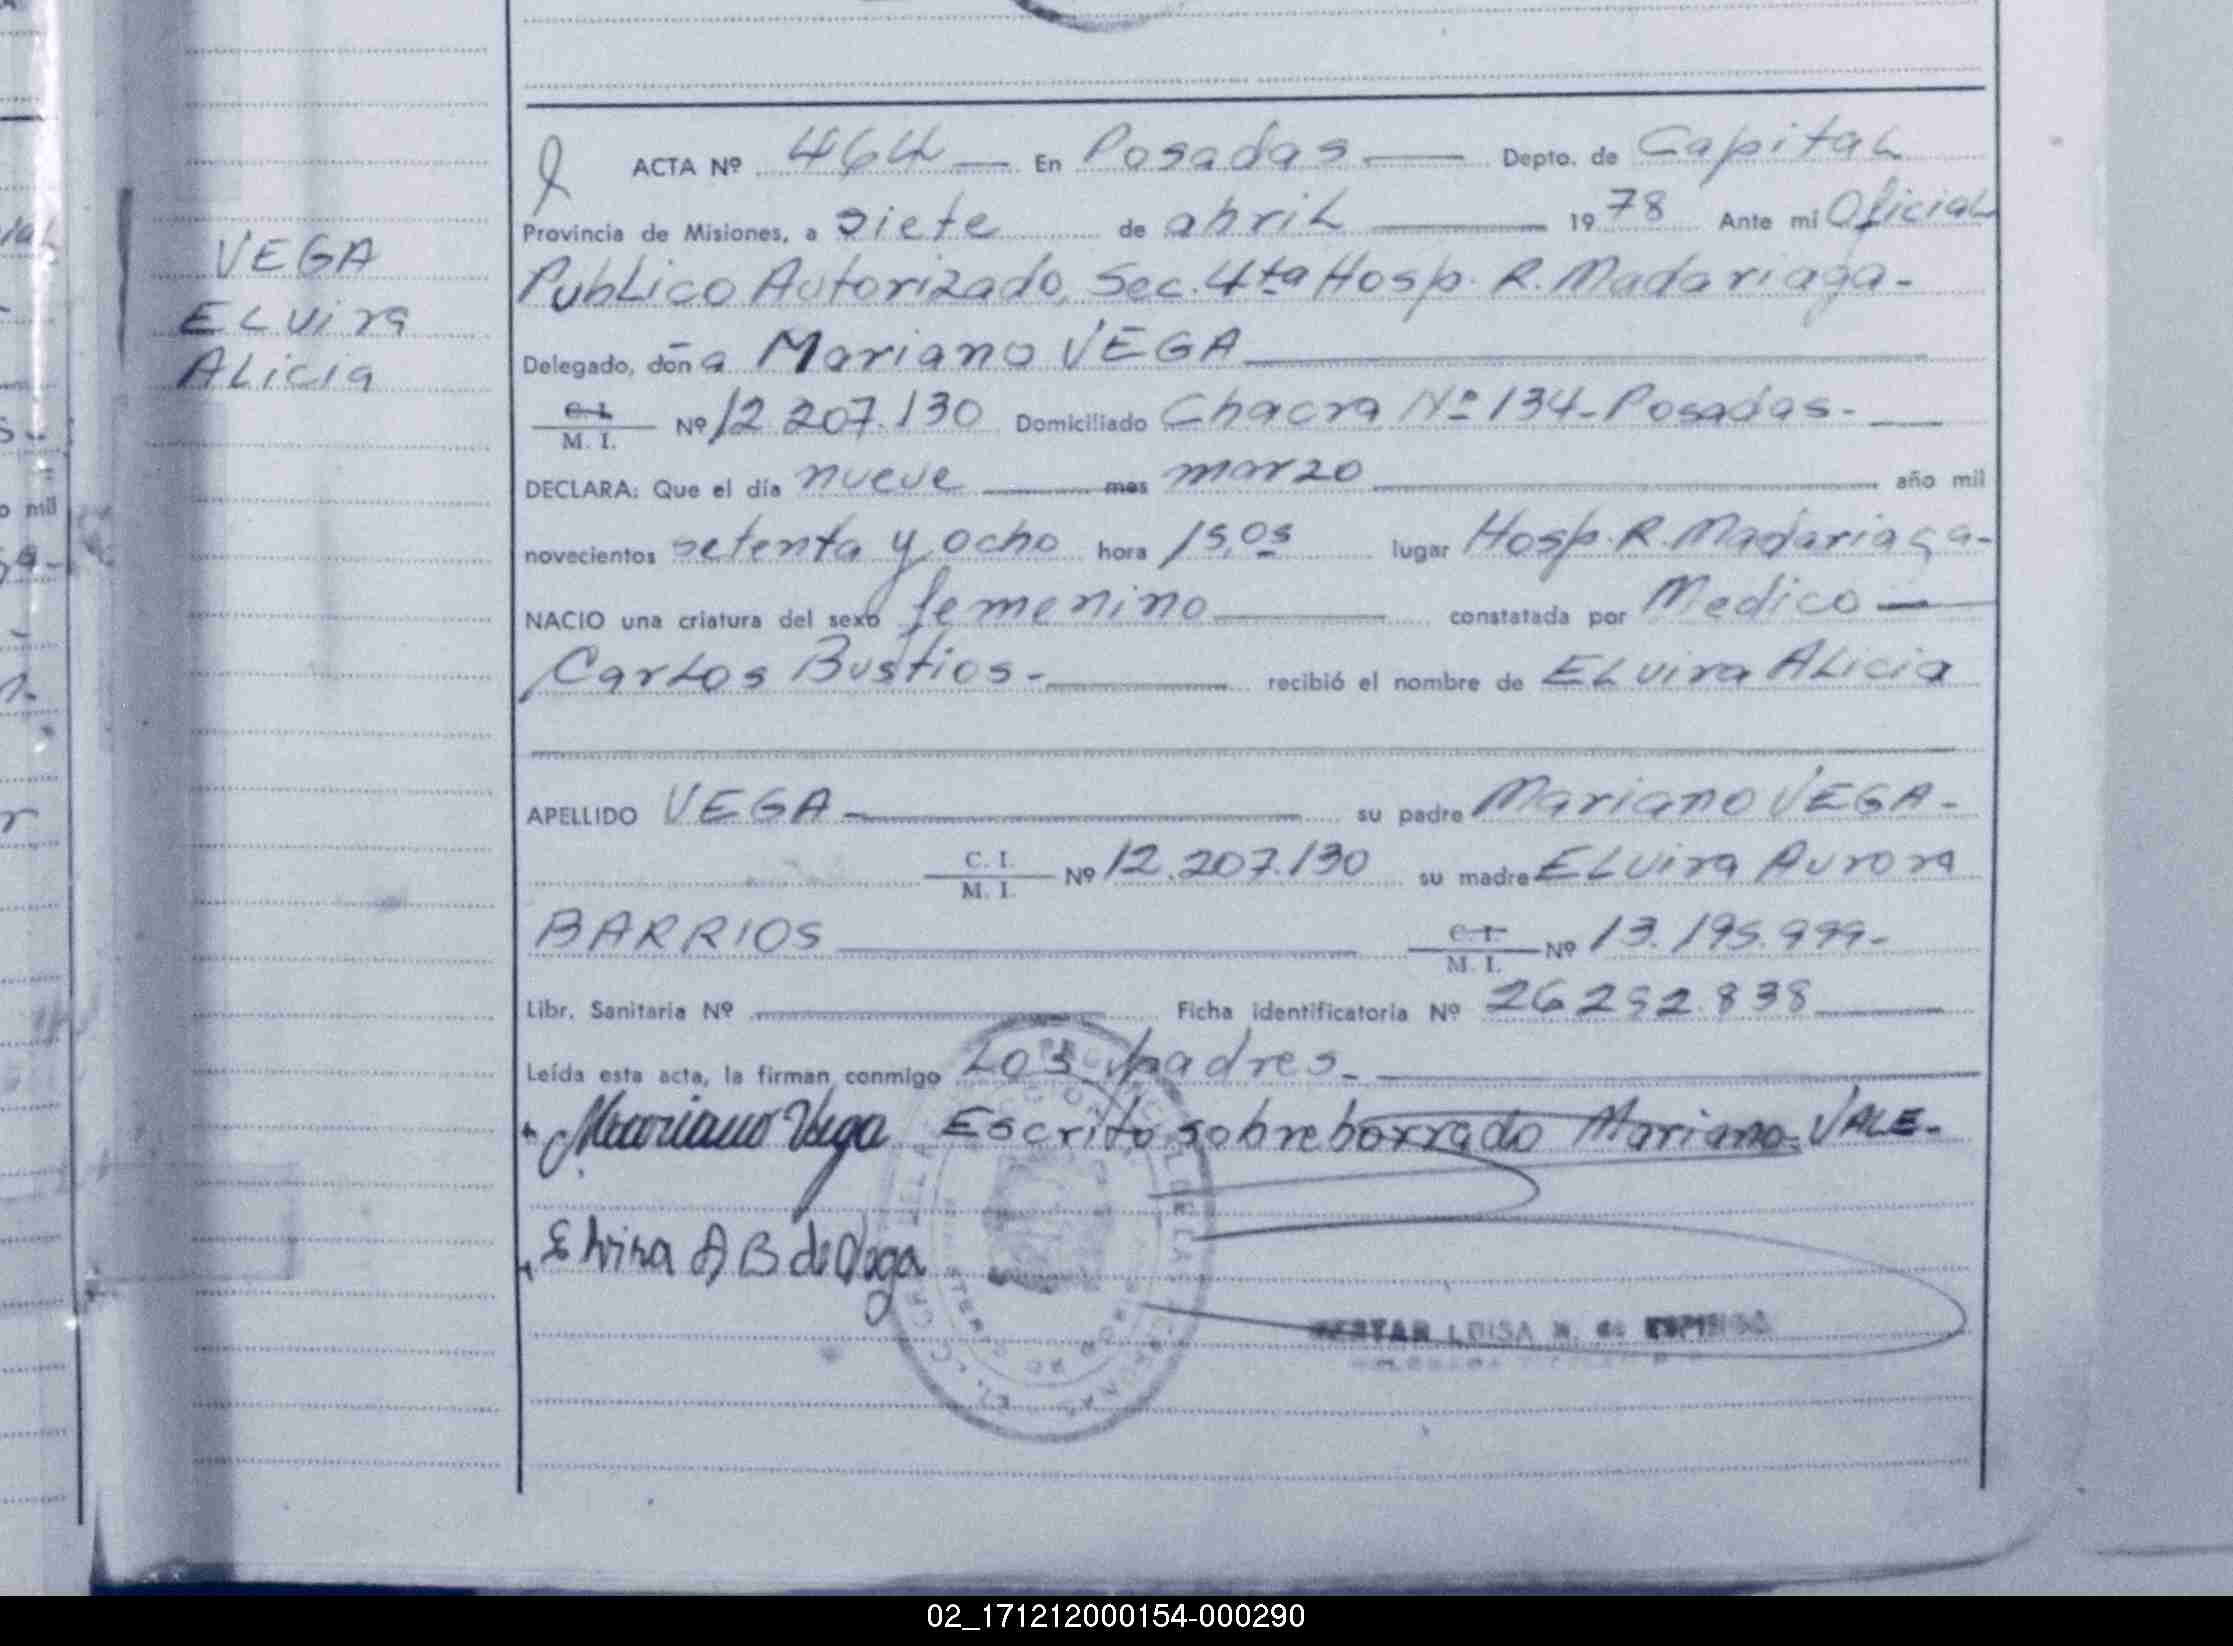 ACTA Nº 464 En Posadas Depto. de Capital
Provincia de Misiones, a siete de abril 1978 Ante mi Oficial
Publico Autorizado, Sec. 4ta Hosp. R. Madariaga-
VEGA
Elvira
Alicia
Delegado, don a Mariano VEGA
C. I.
M. I. Nº 12.207.130 Domiciliado Chacra Nº 134-Posadas-
DECLARA: Que el día nueve mes marzo año mil
novecientos setenta y ocho hora 15,05 lugar Hosp. R. Madariaga-
NACIO una criatura del sexo femenino constatada por Medico
Carlos Bustios- recibió el nombre de Elvira Alicia
APELLIDO VEGA su padre Mariano VEGA-
C. I.
M. I. Nº 12.207.130 su madre Elvira Aurora
BARRIOS C. I.
M. I. Nº 13.195.999-
Libr. Sanitaria Nº Ficha identificatoria Nº 26.292.838
Leída esta acta, la firman conmigo Los padres-
Mariano Vega Escrito sobreborrado Mariano: VALE-
Elvira A B de Vega
LUISA N. de
02_171212000154-000290